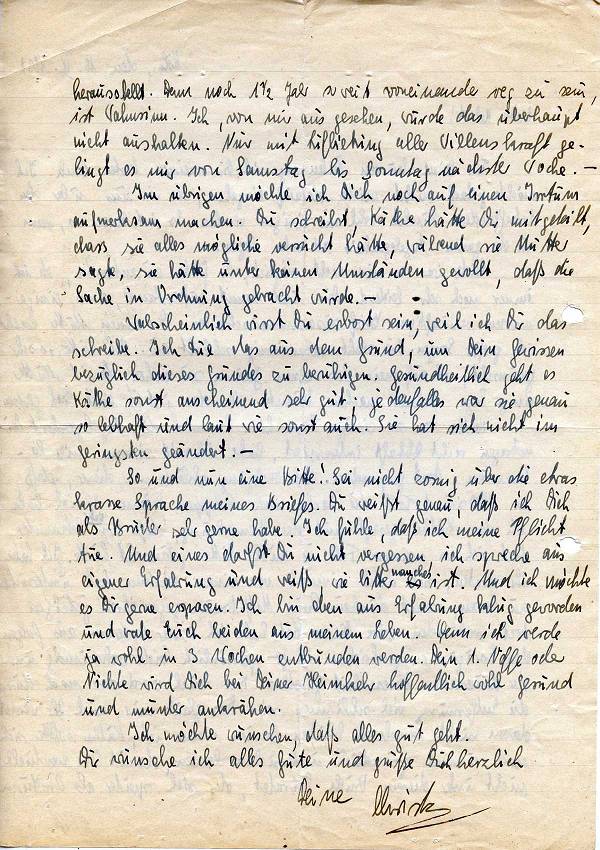 herausstellt. Denn noch 1½ Jahr so weit voneinander weg zu sein,
ist Wahnsinn. Ich, von mir aus gesehen, würde das überhaupt
nicht aushalten. Nur mit aller Willenskraft ge-
lingt es mir von Samstag bis Sonntag nächster Woche. —
Im übrigen möchte ich Dich noch auf einen Irrtum
aufmerksam machen. Du schreibst, Käthe hätte Dir mitgeteilt,
dass sie alles mögliche versucht hätte, während sie Mutter
sagte, sie hätte unter keinen Umständen gewollt, daß die
Sache in Ordnung gebracht würde. —
Wahrscheinlich wirst Du erbost sein, weil ich Dir das
schreibe. Ich tue das aus dem Grund, um Dein Gewissen
bezüglich dieses Grundes zu beruhigen. Gesundheitlich geht es
Käthe sonst anscheinend sehr gut, jedenfalles war sie genau
so lebhaft und laut wie sonst auch. Sie hat sich nicht im
geringsten geändert. —
So und nun eine Bitte! Sei nicht zornig über die etwas
krasse Sprache meines Briefes. Du weißt genau, daß ich Dich
als Bruder sehr gerne habe. Ich fühle, daß ich meine Pflicht
tue. Und eines darfst Du nicht vergessen, ich spreche aus
eigener Erfahrung und weiß wie bitter manches ist. Und ich möchte
es Dir gerne ersparen. Ich bin eben aus Erfahrung klug geworden
und rate Euch beiden aus meinem Leben. Denn ich werde
ja wohl in 3 Wochen entbunden werden. Dein 1. Neffe oder
Nichte wird Dich bei Deiner Heimkehr hoffentlich wohl gesund
und munter ankrähen.
Ich möchte wünschen, daß alles gut geht.
Dir wünsche ich alles Gute und grüße Dich herzlich
Deine